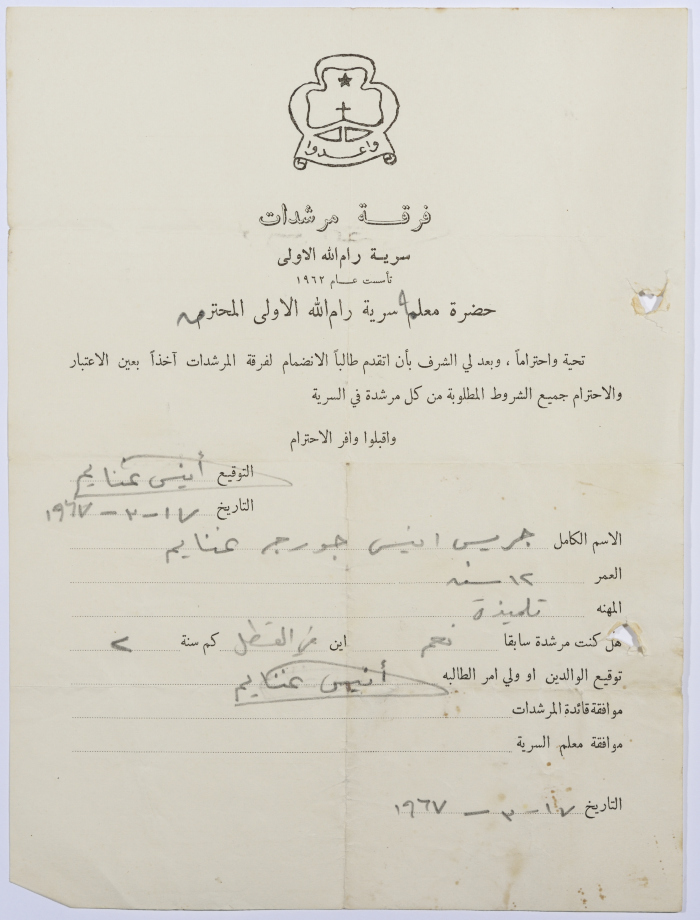 واعدوا
فرقة مرشدات
سرية رام الله الاولى
تأست عام ١٩٦٢
حضرة معلم سرية رام الله الاولى المحترم
تحية واحتراماً ، وبعد لي الشرف بأن اتقدم طالباً الانضمام لفرقة المرشدات آخذاً بعين الاعتبار
والاحترام جميع الشروط المطلوبة من كل مرشدة في السرية
واقبلوا وافر الاحترام
التوقيع أنيس غنايم
التاريخ ١٧-٣-١٩٦٧
الاسم الكامل جريس انيس جورج غنايم
العمر ١٢ سنه
المهنه تلميذة
هل كنت مرشدة سابقا نعم اين كم سنة ٢
توقيع الوالدين او ولي امر الطالبه أنيس غنايم
موافقة قائدة المرشدات
موافقة معلم السرية
التاريخ ١٧-٣-١٩٦٧